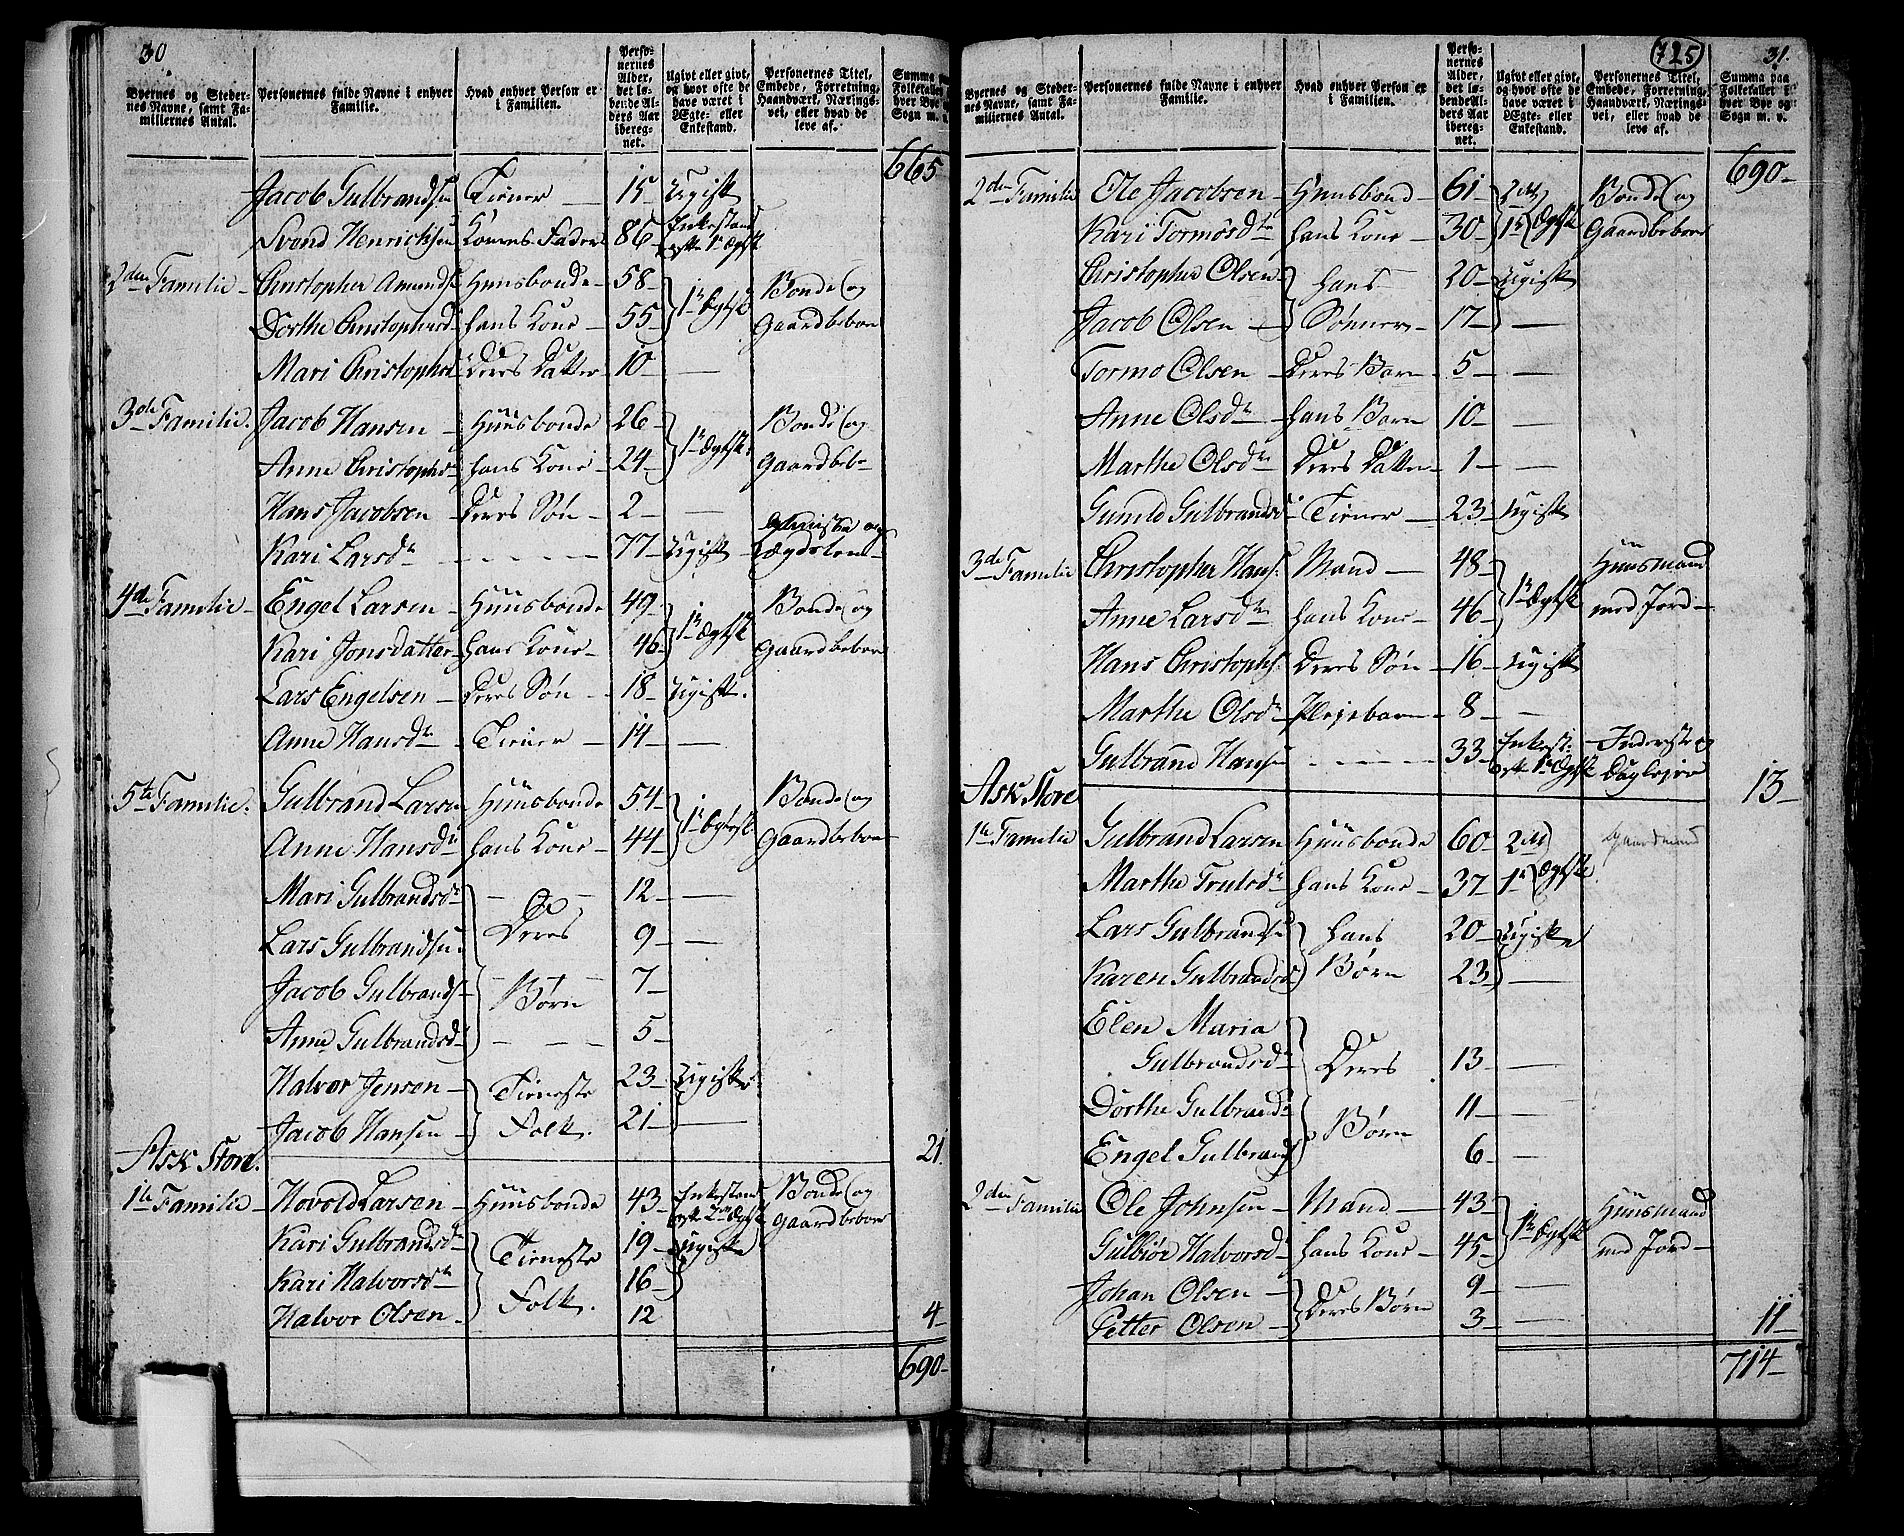 30.
Byernes og Steder-
nes Navne, samt Fa-
miliernes Antal.
Personernes fulde Navne i enhver
Familie.
Hvad enhver Person er
i Familien.
Perso-
nernes
Alder,
det lø-
bende Al-
ders Aar
iberegg-
net.
Ugivt eller givt,
og hvor ofte de
have været i
Ægte- eller
Enkestand.
Personernes Titel,
Embede, Forretning,
Haandværk, Nærings-
vei, eller hvad de
leve af.
Summa paa
Folketallet i
hver Bye og
Sogn m. v.
665
Jacob Gulbrandsen Tiener — 15 — Ugift
Svend Henrichsen Konens Fader 86 — Enkestand efter 1te Ægtsk
2den Familie — Christopher Amunds. Huusbonde — 58 — } 1te Ægtsk Bonde og
Dorthe Christophersd. hans Kone — 55 — Gaardbeboer
Mari Christophersd. Deres Datter — 10 — —
3die Familie. Jacob Hansen — Huusbonde 26 — } 1te Ægtsk. Bonde og
Anne Christophersd. hans Kone — 24 — Gaardbeb.
Hans Jacobsen Deres Søn — 2 — —
Kari Larsdr — — — — 77 — Ugift — Lægdslem
4de Familie — Engel Larsen — Huusbonde 49 — } 1te Ægtsk Bonde og
Kari Jonsdatter — hans Kone — 46 Gaardbeboer
Lars Engelsen — Deres Søn — 18 — Ugift.
Anne Hansdr — Tiener — 14 — —
5te Familie. Gulbrand Larsen Huusbonde 54 — } 1te Ægtsk Bonde og
Anne Hansdr hans Kone — 44 — Gaardbeboer
Mari Gulbrandsdr } — — 12 — —
Lars Gulbrandsen. Deres 9 — —
Jacob Gulbrands. — Børn 7 —
Anne Gulbrandsd. — — — 5 —
Halvor Jensen — } Tieneste 23 — Ugifte
Jacob Hansen — Folk. 21 — —
Ask Store. 21.
1te Familie — Hovold Larsen — Huusbonde 43 — Enkestand efter 2det Ægtsk Bonde og
Gaardbeboer
Kari Gulbrandsdr } Tieneste 19 — Ugifte
Kari Halvorsdr 16 —
Halvor Olsen. Folk. 12 4 —
690 —
725
31.
Byernes og Steder-
nes Navne, samt Fa-
miliernes Antal.
Personernes fulde Navne i enhver
Familie.
Hvad enhver Person er
i Familien.
Perso-
nernes
Alder,
det lø-
bende Al-
ders Aar
iberegg-
net.
Ugivt eller givt,
og hvor ofte de
have været i
Ægte- eller
Enkestand.
Personernes Titel,
Embede, Forretning,
Haandværk, Nærings-
vei, eller hvad de
leve af.
Summa paa
Folketallet i
hver Bye og
Sogn m. v.
690 —
2den Familie Ole Jacobsen — Huusbond — 61 — 2det } Ægtsk Bonde og
Kari Tormosdr hans Kone — 30 — 1te Gaardbeboer
Christopher Olsen } hans 20 — Ugift
Jacob Olsen — Sønner — 17 — —
Tormo Olsen — Deres Barn — 5 — —
Anne Olsdr hans Barn 10 — —
Marthe Olsdr Deres Datter — 1 — —
Gunild Gulbrandsd. Tiener — 23 — Ugift
3die Familie Christopher Hans. Mand — 48 — } 1te Ægtsk Huusmand
Anne Larsdr hans Kone — 46 — med Jord —
Hans Christophs. Deres Søn — 16 — Ugift
Marthe Olsdr Plejebarn — 8 — —
Gulbrand Hansen — — — 33 — Enkest. efter 1te Ægtsk Inderste og
Daglejer
Ask Store 13 —
1te Familie Gulbrand Larsen Huusbonde 60 — 2det } Ægtsk Gaardmand
Marthe Trulsdr hans Kone — 37 — 1te
Lars Gulbrandsen } hans 20 — Ugifte
Karen Gulbrandsd. Børn 23 — —
Elen Maria
Gulbrandsdr } Deres 13 — —
Dorthe Gulbrandsd. Børn 11 — —
Engel Gulbrandsd. 6 — —
2den Familie Ole Johnsen — Mand — 43 — } 1te Ægtsk Huusmand
Gulbiør Halvorsd. hans Kone — 45 — med Jord —
Johan Olsen — } Deres Børn 9 — —
Petter Olsen — 3 — — 11 —
714 —